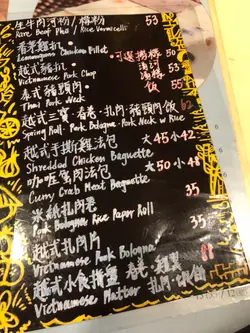 生牛肉河粉/檬粉 53
Rare Beef Pho / Rice Vermicelli
香茅雞扒
Lemongrass Chicken Fillet 50
越式豬扒
Vietnamese Pork Chop 55
泰式豬頸肉
Thai Pork Neck 55
越式三寶·春卷·扎肉·豬頸肉飯 62
Spring Roll· Pork Bologna· Pork Neck w Rice
越式手撕雞法包 大45 小42
Shredded Chicken Baguette
咖喱蟹肉法包 大50 小48
Curry Crab Meat Baguette
米紙扎肉卷 35
Pork Bologna Rice Paper Roll
越式扎肉片 35
Vietnamese Pork Bologna
越式小食拼盤 春卷·雞翼 88
Vietnamese Platter 扎肉·